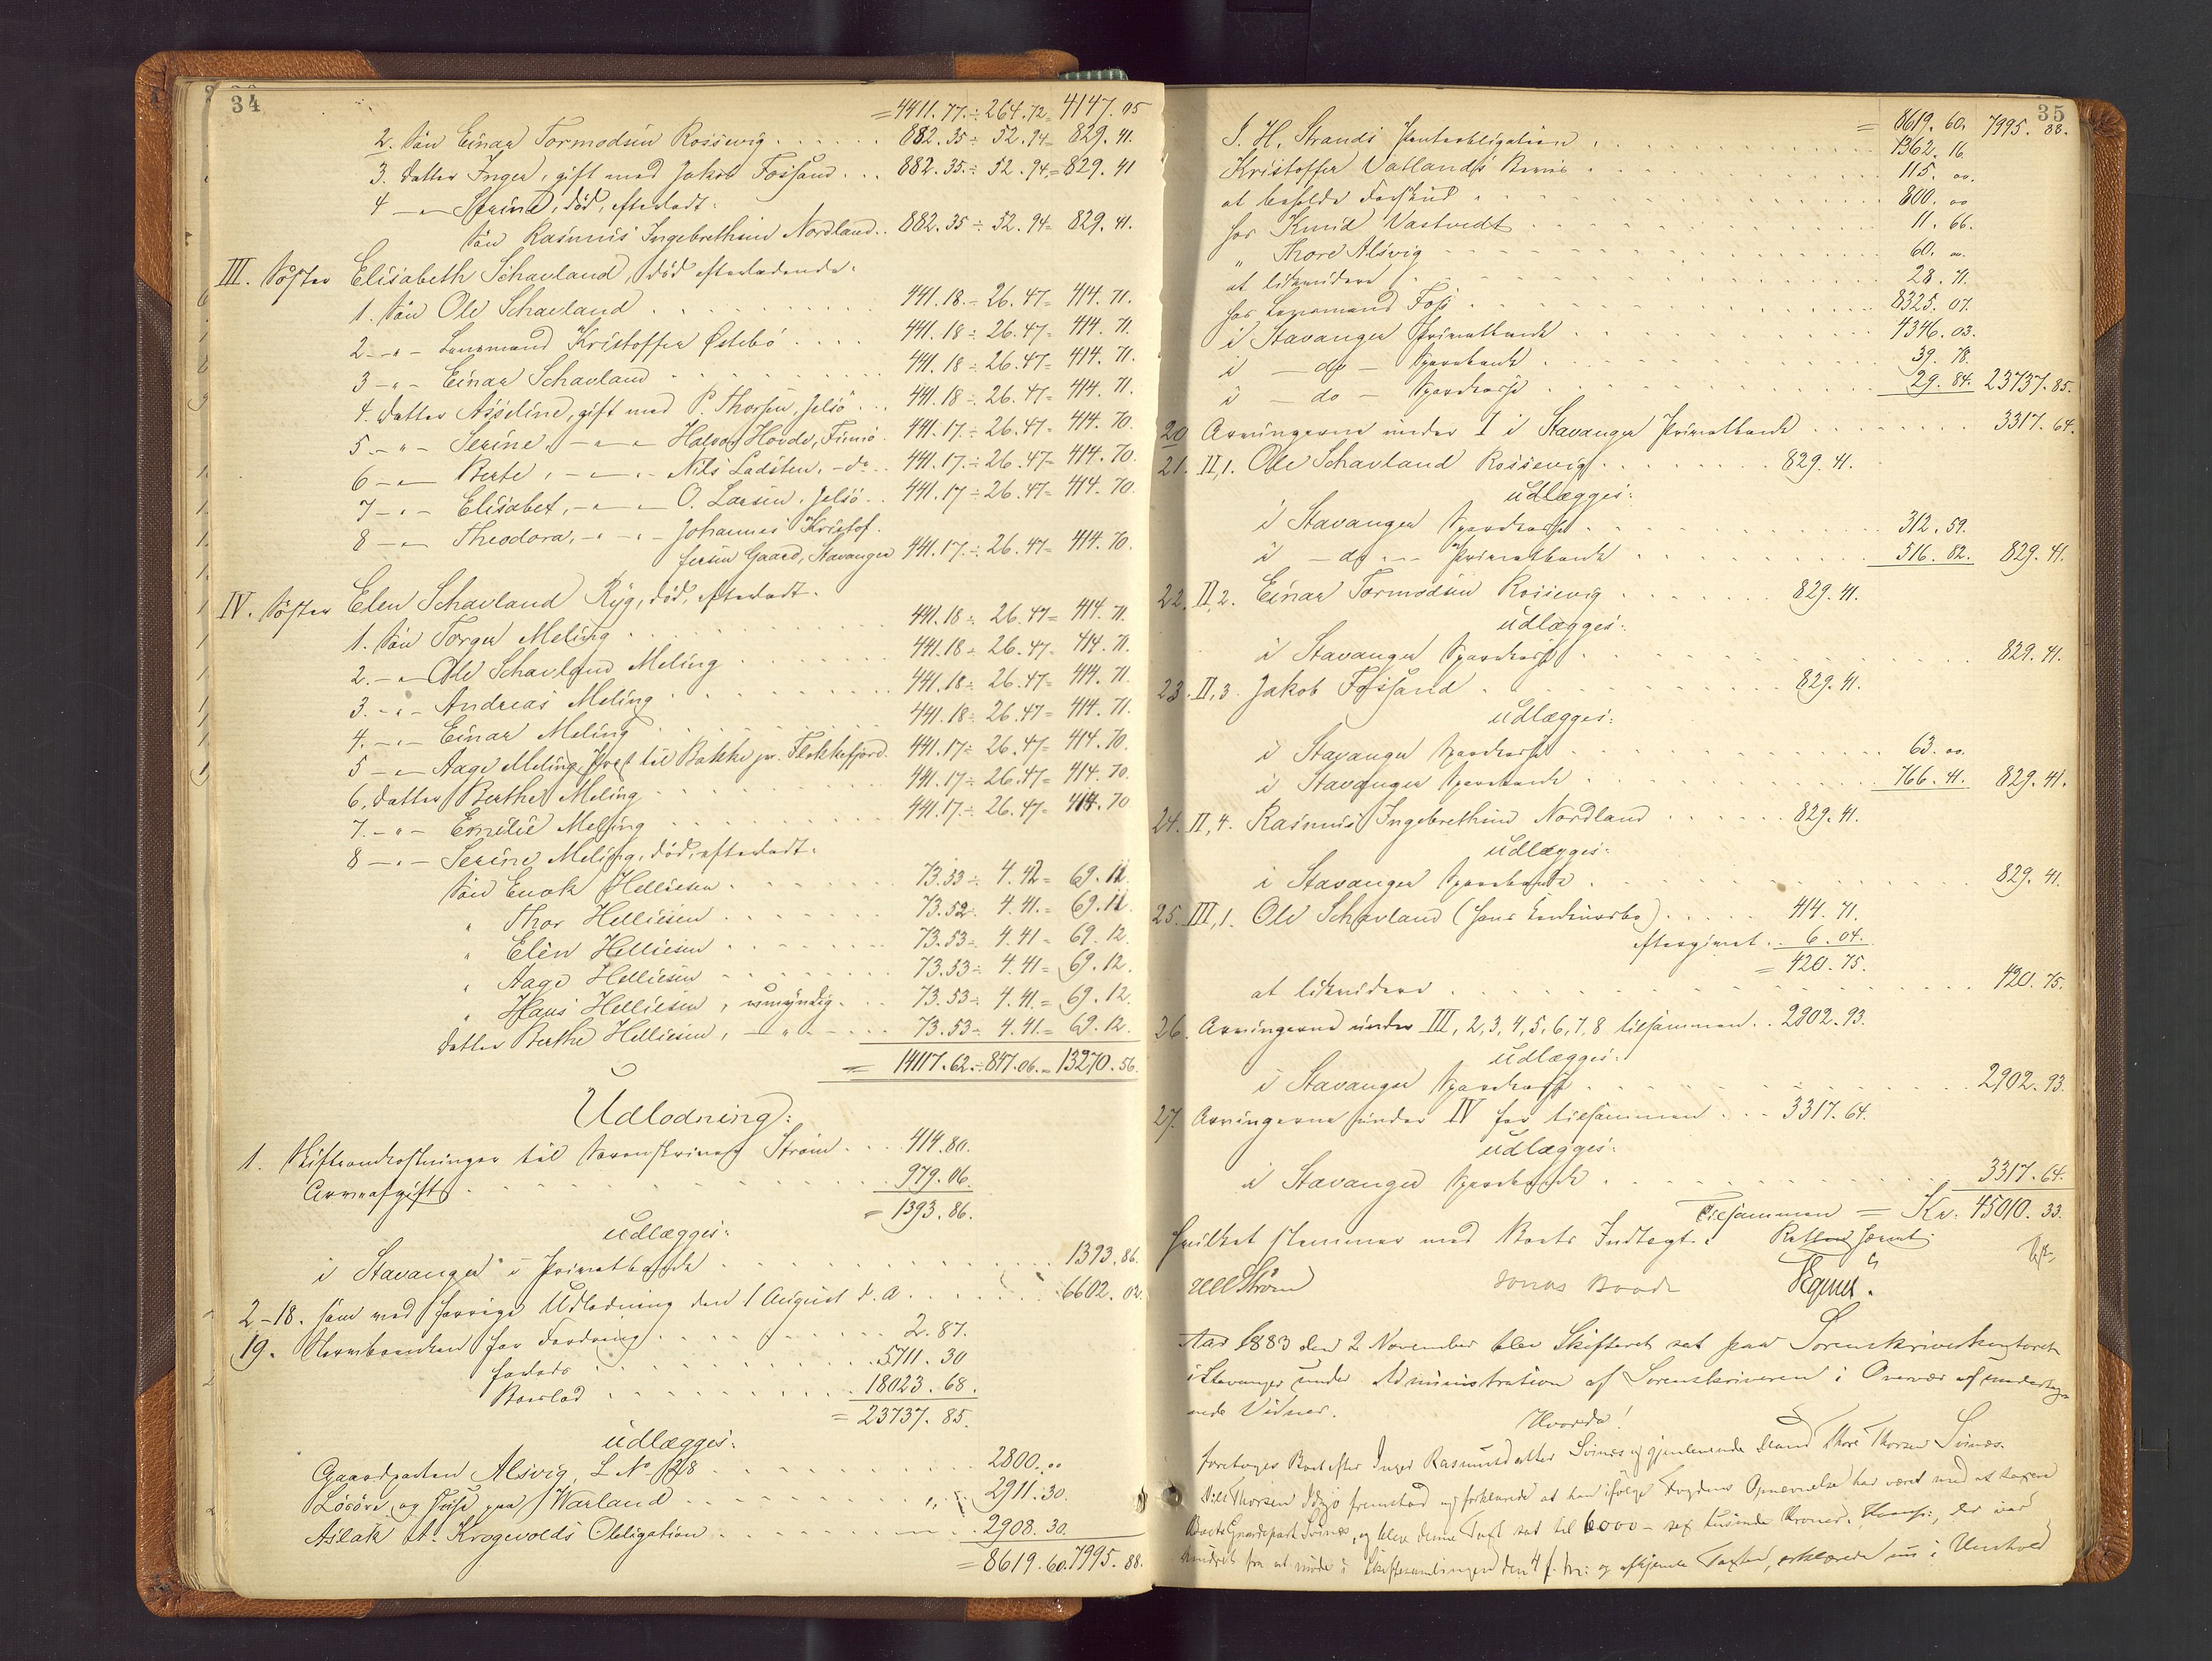 34
= 4411.77 ÷ 264.72 = 4147.05
2. Sön Einar Tormodsen Rossevig . . . . . 882.35 ÷ 52.94 = 829.41.
3. Datter Inger, gift med Jakob Fossand . . . 882.35 ÷ 52.94 = 829.41
4 — " — Serine, död, efterladt:
Sön Rasmus Ingebrethsen Nordland . . 882.35 ÷ 52.94 = 829.41.
III. Söster Elisabeth Schavland, död efterladende:
1. Sön Ole Schavland . . . . 441.18 ÷ 26.47 = 414.71.
2 - " - Lensmand Kristoffer Østebö . . . . 441.18 ÷ 26.47 = 414.71.
3 - " - Einar Schavland . . . . 441.18 ÷ 26.47 = 414.71.
4. Datter Asseline, gift med P. Thorsen, Jelsö . . . 441.18 ÷ 26.47 = 414.71.
5 - " - Serine, - " - " Halvor Hovde, Finnö . 441.17 ÷ 26.47 = 414.70.
6 - " - Berte, - " - " - Nils Ladsten, - do . . 441.17 ÷ 26.47 = 414.70.
7 - " - Elisabet, - " - " O. Larsen, Jelsö . . 441.17 ÷ 26.47 = 414.70.
8 - " - Theodora, - " - " - Johannes Kristof-
fersen Gaard, Stavanger 441.17 ÷ 26.47 = 414.70.
IV. Söster Elen Schavland Ryg, död, efterladt:
1. Sön Torger Meling . . . . 441.18 ÷ 26.47 = 414.71.
2. - " - Ole Schavland Meling . . . . 441.18 ÷ 26.47 = 414.71.
3. - " - Andreas Meling . . . . 441.18 ÷ 26.47 = 414.71.
4. - " - Einar Meling . . . . 441.18 ÷ 26.47 = 414.71.
5 - " - Aage Meling, Præst til Bakke pr. Flekkefjord. 441.17 ÷ 26.47 = 414.70.
6. Datter Berthe Meling . . . . 441.17 ÷ 26.47 = 414.70.
7. - " - Emelie Meling . . . . 441.17 ÷ 26.47 = 414.70
8 - " - Serine Meling, död, efterladt:
Sön Enok Helliesen . . . . 73.53 ÷ 4.42 = 69.11.
" Thor Helliesen . . . . 73.52 ÷ 4.41 = 69.11.
" Elen Helliesen . . . . 73.53 ÷ 4.41 = 69.12.
" Aage Helliesen . . . . 73.53 ÷ 4.41 = 69.12.
" Hans Helliesen, umyndig . . . 73.53 ÷ 4.41 = 69.12.
Datter Berthe Helliesen, - " - . . . 73.53 ÷ 4.41 = 69.12.
= 14117.62 ÷ 847.06 = 13270.56.
Udlodning:
1. Skifteomkostninger til Sorenskriver Ström . . . 414.80.
Arveafgift . . . . 979.06.
= 1393.86.
udlægges:
i Stavanger Privatbank . . . . 1393.86.
2-18. som ved forrige Udlodning den 1 August d. A. . . . 6602.02.
19. for Fordring . . . . 2.87.
forlods . . . . 5711.30
Boeslod . . . . 18023.68.
= 23737.85.
udlægges:
Gaardparten Alsvig, L No 28 . . . . 2800.00
Lösöre og paa Warland . . . . 2911.30.
Aslak A. Krogevolds Obligation . . . . 2908.30.
= 8619.60. 7995.88.
35
= 8619.60. 7995.88.
I. H. Strands Panteobligation . . . . 1362.16
Kristoffer Vatlands Bevis . . . . 115.00.
at beholde Forskud . . . . 800.00
hos Knud Vastvedt . . . . 11.66.
" Thore Alsvig . . . . 60.00.
at likvidere . . . . 28.71.
hos Lensmand Foss . . . . 8325.07.
i Stavanger Privatbank . . . . 4346.03.
i - do - Sparebank . . . . 39.78.
i - do - Sparekasse . . . . 29.84. 23737.85.
20 Arvingerne under I i Stavanger Privatbank . . . . 3317.64.
21. II,1. Ole Schavland Rossevig . . . . 829.41.
udlægges:
i Stavanger Sparekasse . . . . 312.59.
i - do - Privatbank . . . . 516.82. 829.41.
22. II,2. Einar Tormodsen Rossevig . . . . 829.41.
udlægges:
i Stavanger Sparekasse . . . . 829.41.
23. II,3. Jakob Fossand . . . . 829.41.
udlægges:
i Stavanger Sparekasse . . . . 63.00.
i Stavanger Sparebank . . . . 766.41. 829.41.
24. II,4. Rasmus Ingebrethsen Nordland . . . . 829.41.
udlægges:
i Stavanger Sparebank . . . . 829.41.
25. III,1. Ole Schavland (hans Enkes ) . . . . 414.71.
eftergivet . . 6.04.
= 420.75.
at likvidere . . . . 420.75.
26. Arvingerne under III, 2, 3, 4, 5, 6, 7, 8 tilsammen . . 2902.93.
udlægges:
i Stavanger Sparekasse . . . . 2902.93.
27. Arvingerne under IV har tilsammen . . . 3317.64.
udlægges:
i Stavanger Sparebank . . . . 3317.64.
Tilsammen = Kr. 45010.33.
hvilket stemmer med Boets Indtægt. Retten hævet.
Ström Jonas Boode
Aar 1883 den 2 November blev Skifteret sat paa Sorenskriverkontoret
i Stavanger under Administration af Sorenskriveren i Overvær af undertegn
nede Vidner.
Hvorda!
foretoges Boet efter Inger Rasmusdatter Svines og gjenlevende Mand Thore Thorsen Svines.
Nils Thorsen fremstod og forklarede at han ifølge Fogdens Opnævnelse har været med at taxere
Boets Gaardpart Svines, og blev denne Taxt sat til 6000 - sex tusinde Kroner. der var
hindret fra at møde i Skiftesamlingen den 4 f. M. og afhjemle Taxten, erklærede nu i Henhold